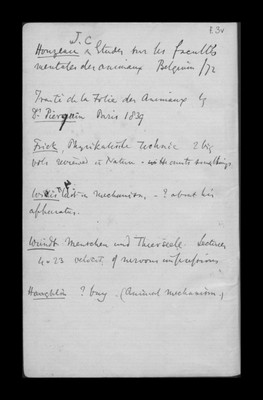 F3v
J. C
Houzeau Etudes sur les facultés
mentales des animaux Belgium /72
Traité de la Folie des Animaux by
Dr Pierquin Paris 1839
Frick, Physikalische Technic 2 big
vols reviewed in Nature -
on mechanism. - ? about his
Wundt Menschen und Thierseele. Lectures
4 - 23 velocity of nervous impressions
Haughton ? buy. (Animal mechanism.)